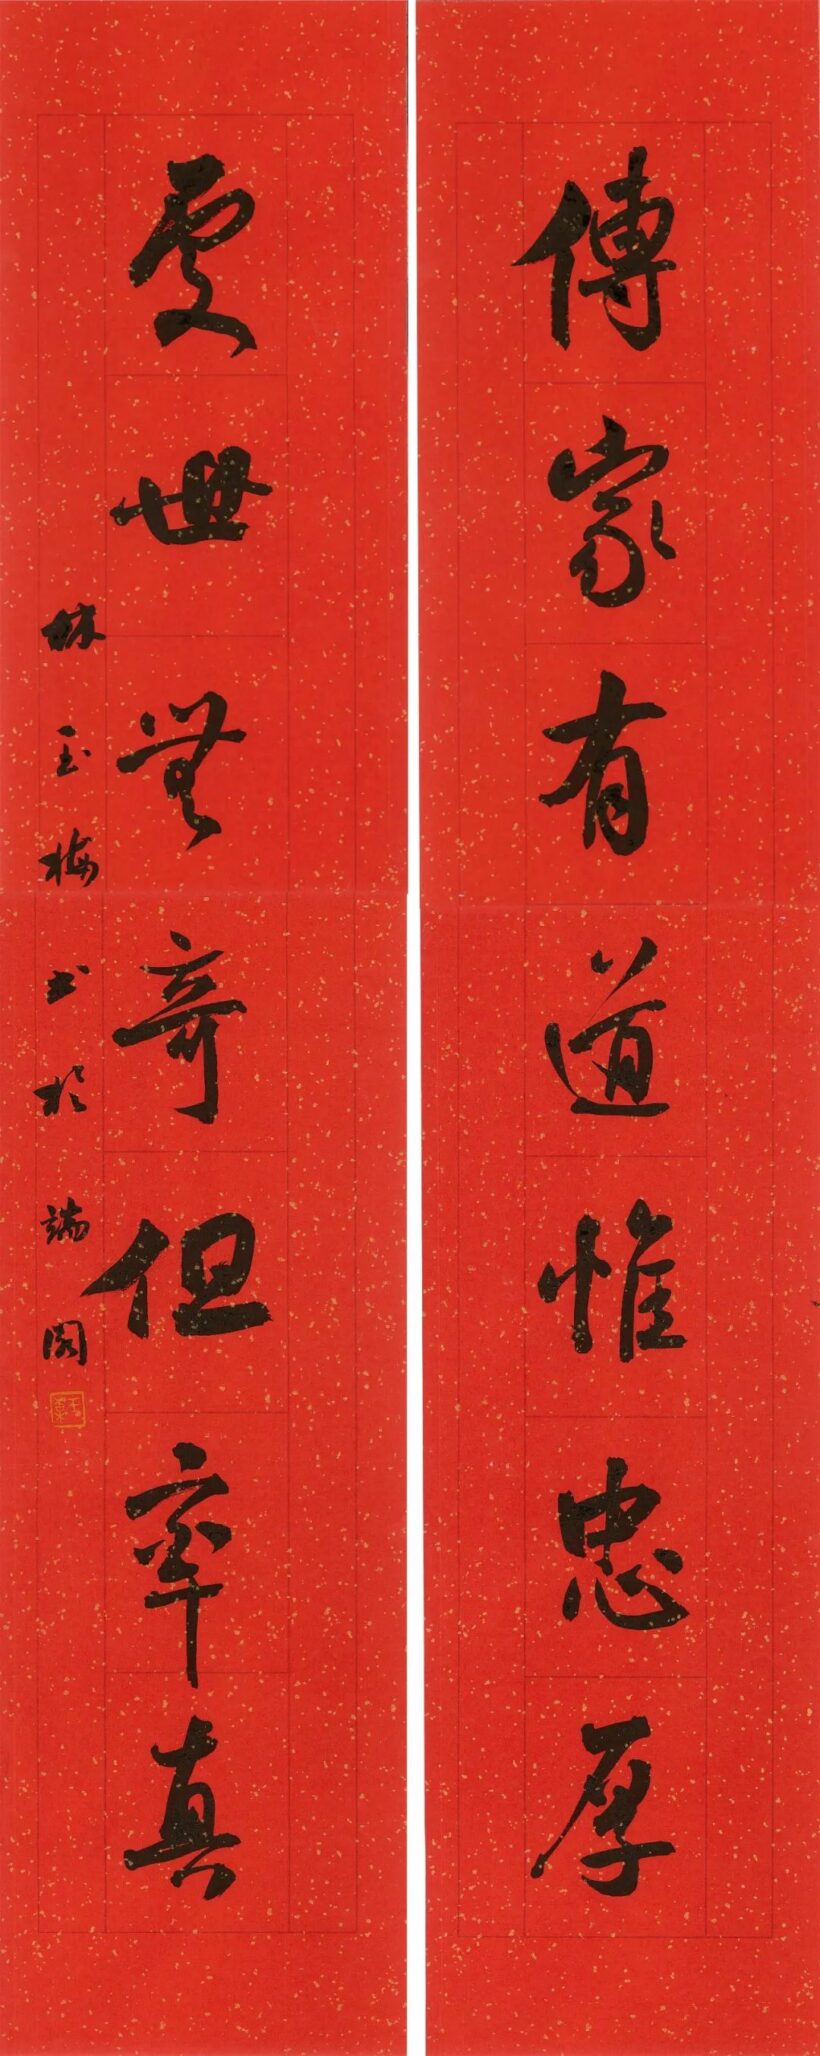 傳家有道惟忠厚
處世無奇但率真
林玉梅書於端園